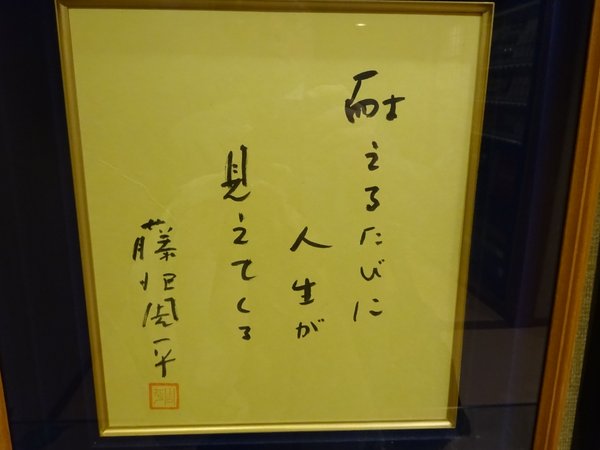 耐えるたびに
人生が
見えてくる
藤沢周平